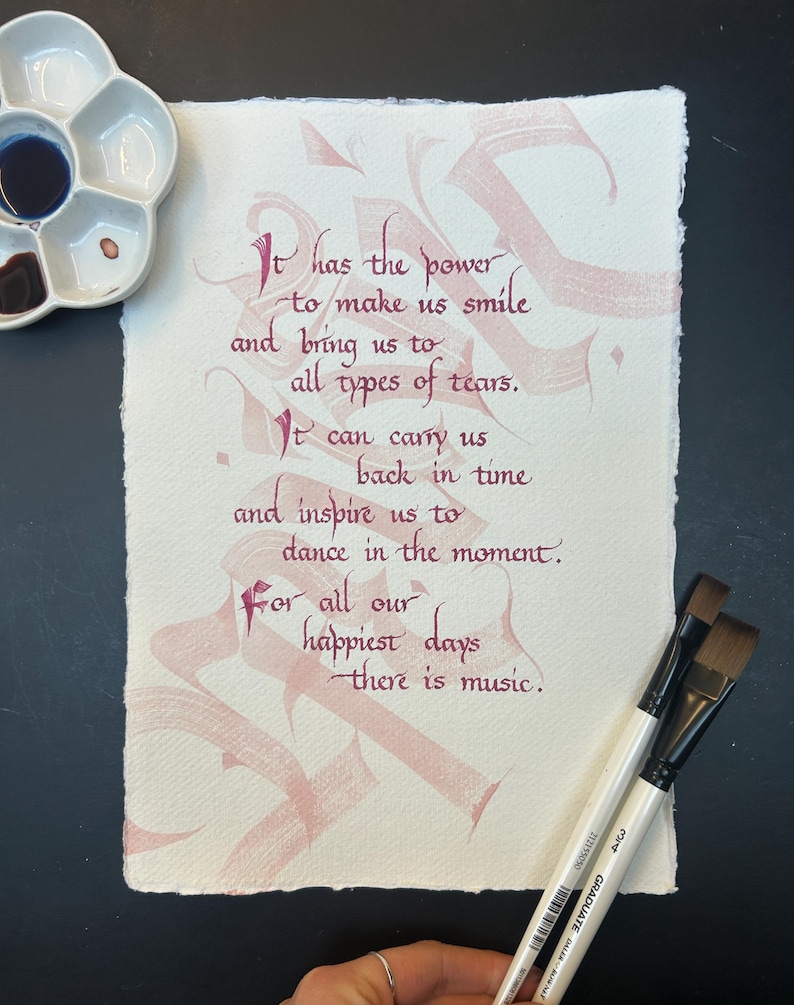 It has the power
to make us smile
and bring us to
all types of tears.
It can carry us
back in time
and inspire us to
dance in the moment.
For all our
happiest days
there is music.
212155050
3/4 GRADUATE DALER ROWNEY